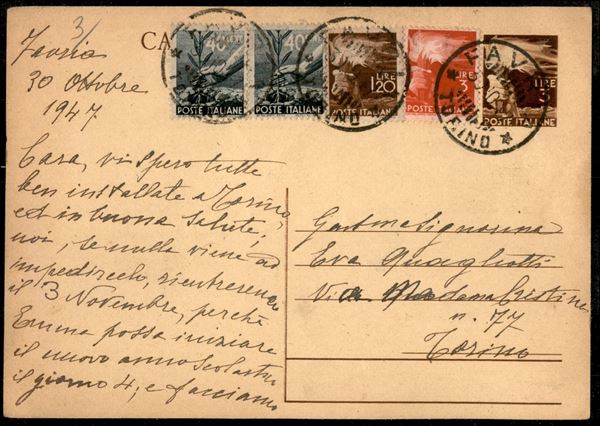 3/
Favria
30 Ottobre
1947
CA
40
40
LIRE
1,20
LIRE
3
LIRE
3
POSTE ITALIANE
POSTE ITALIANE
POSTE ITALIANE
POSTE ITALIANE
POSTE ITALIANE
FAV
TORINO
Cara, vi spero tutte
ben installate a Torino,
ed in buona salute;
noi, se nulla viene ad
impedircelo, rientreremo
il 3 Novembre, perchè
Emma possa iniziare
il nuovo anno scolastico
il giorno 4; e facciamo
Gent.ma Signorina
Eva Quagliotti
Via Madama Cristina
n. 77
Torino